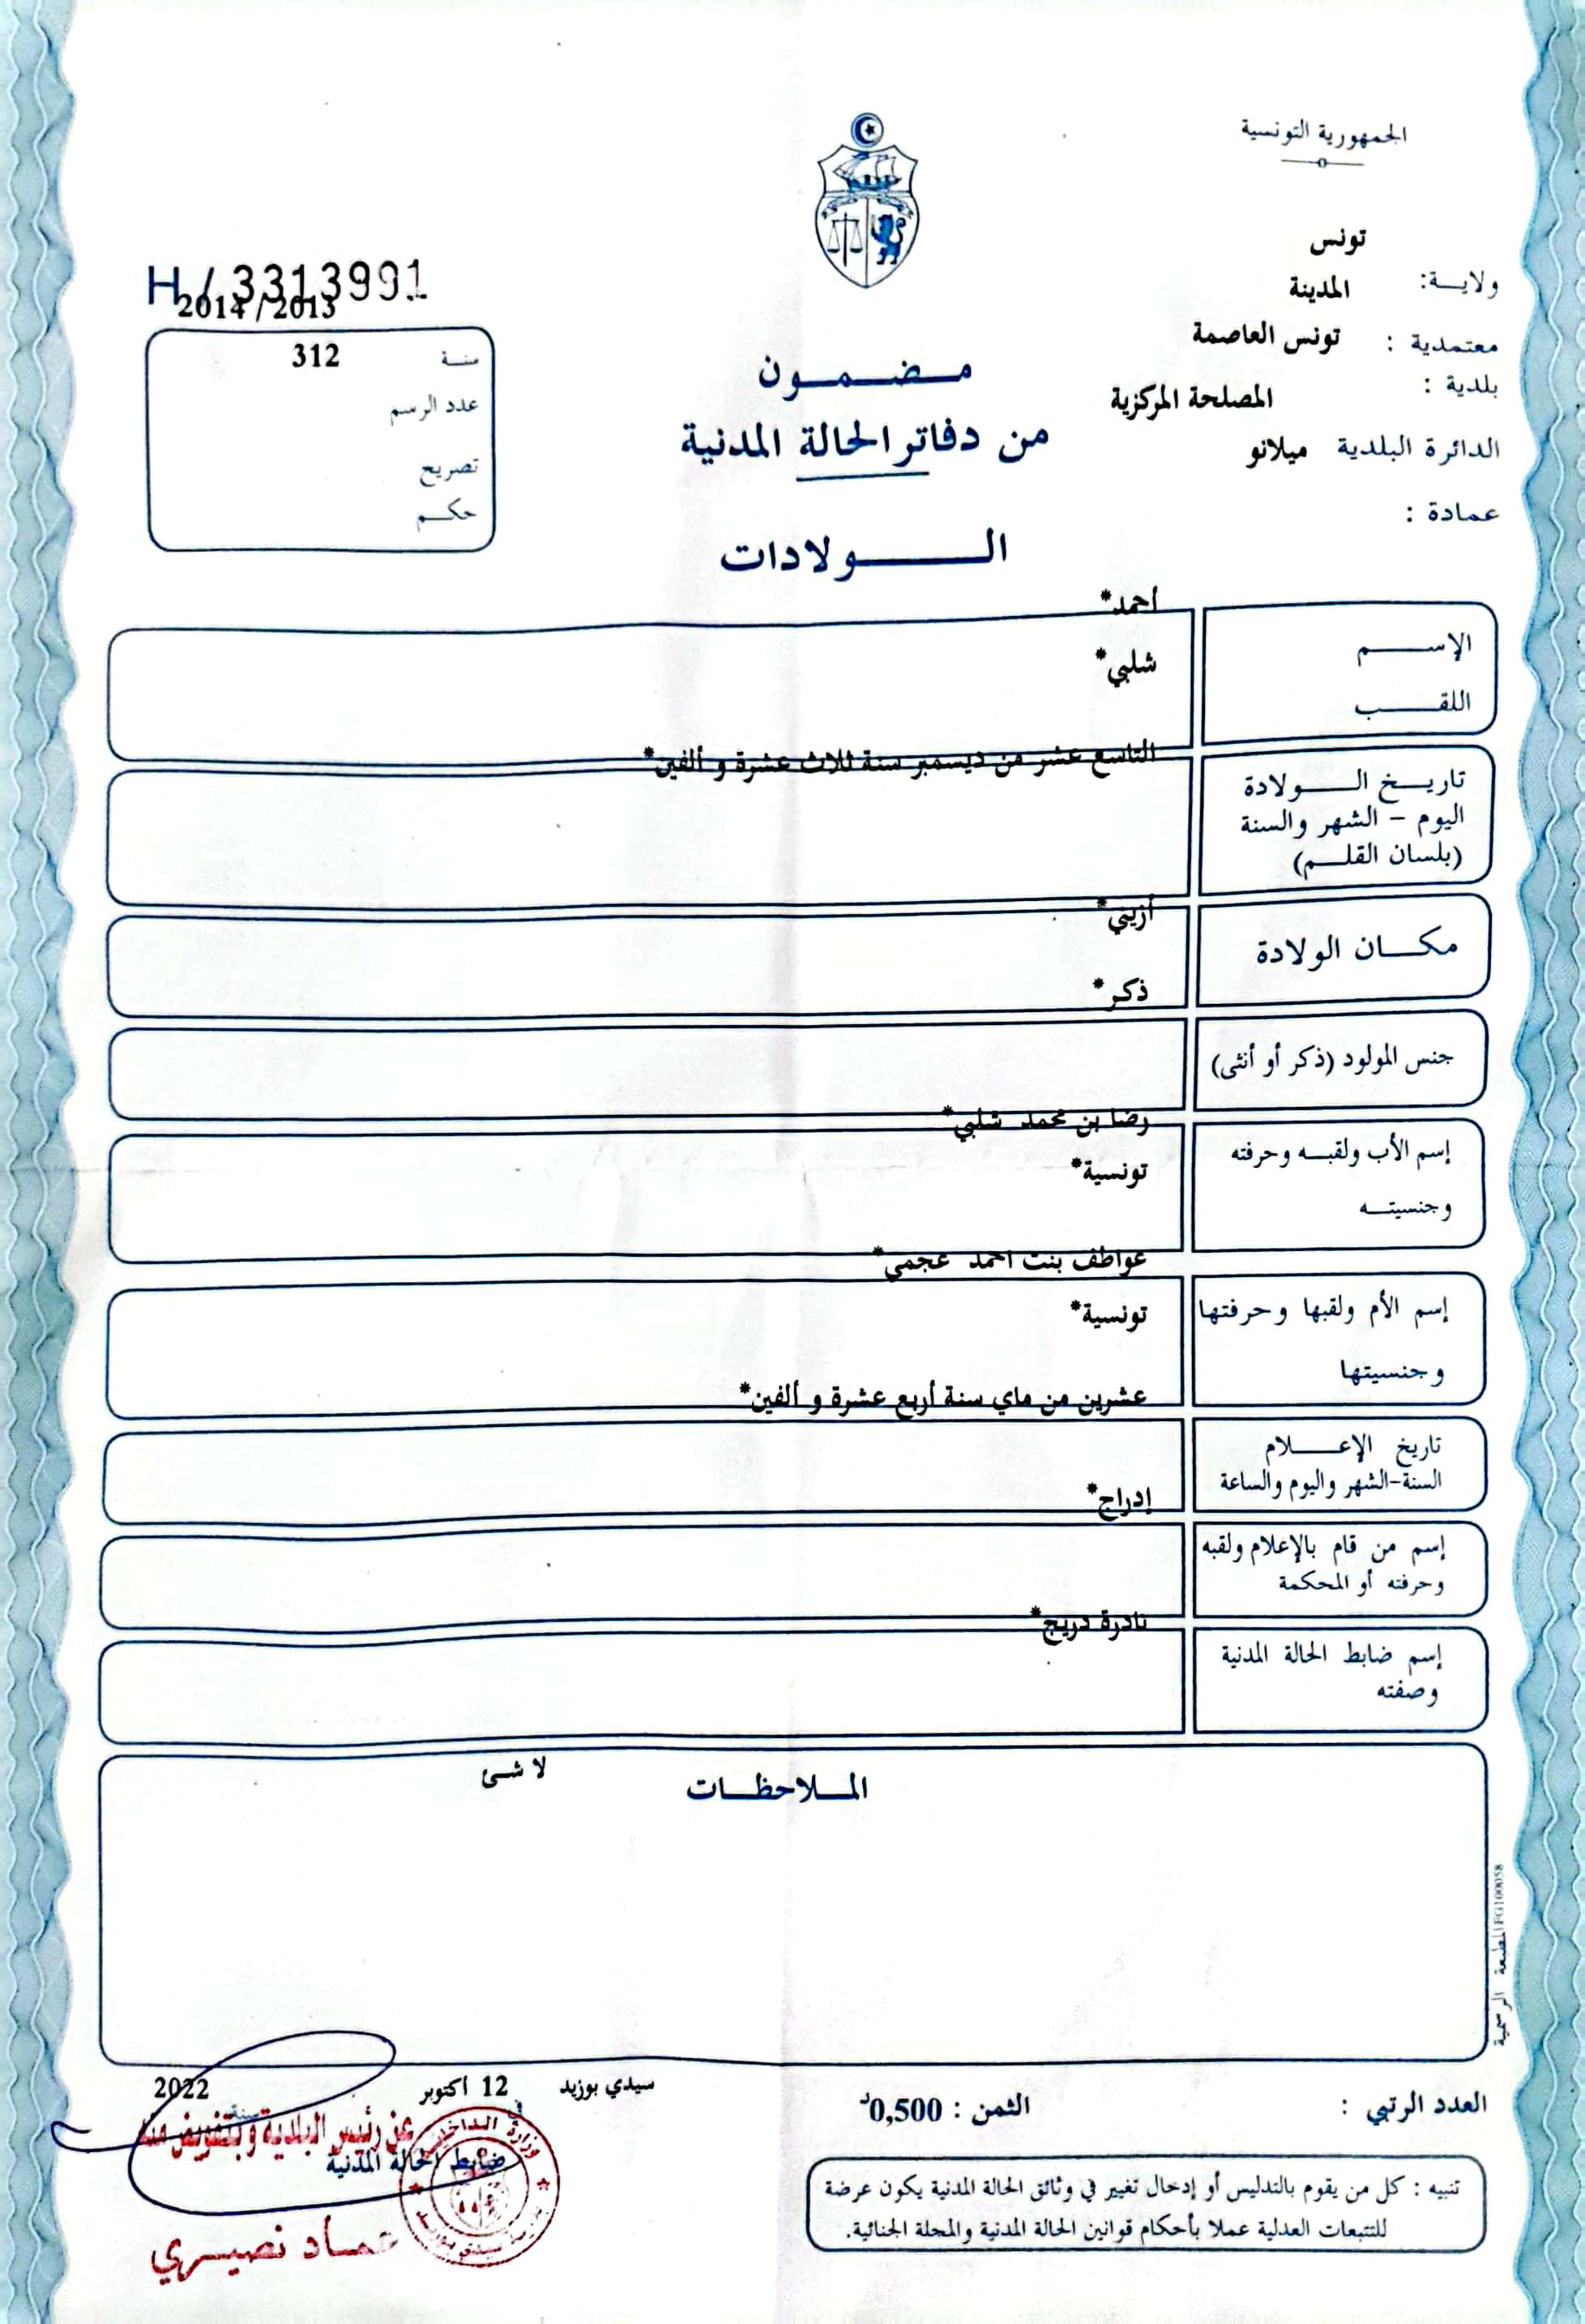 الجمهورية التونسية
تونس
ولايـــة:
المدينة
معتمدية :
تونس العاصمة
بلدية :
المصلحة المركزية
الدائرة البلدية ميلانو
عمادة :
H / 3313991
2014 / 2013
سنـــة 312
عدد الرسم
تصريح
حكـــم
مـــضـــمـــون
من دفاتر الحالة المدنية
الـــــــولادات
أحمد*
الإســـــم
شلبي*
اللقـــــب
التاسع عشر من ديسمبر سنة ثلاث عشرة و ألفين*
تاريـــخ الـــــولادة
اليوم – الشهر والسنة
(بلسان القلـــم)
أزيني*
مكـــان الولادة
ذكر*
جنس المولود (ذكر أو أنثى)
رضا بن محمد شلبي*
إسم الأب ولقبـــه وحرفته
تونسية*
وجنسيتـــه
عواطف بنت احمد عجمي*
إسم الأم ولقبها وحرفتها
تونسية*
وجنسيتها
عشرين من ماي سنة أربع عشرة و ألفين*
تاريخ الإعـــــلام
السنة-الشهر واليوم والساعة
إدراج*
إسم من قام بالإعلام ولقبه
وحرفته أو المحكمة
نادرة دريج*
إسم ضابط الحالة المدنية
وصفته
لا شئ
المـــلاحظـــات
المطبعة الرسمية
العدد الرتبي :
الثمن : 0,500د
سيدي بوزيد
في
12 اكتوبر
سنة
2022
عن رئيس البلدية و بتفويض منه
ضابط الحالة المدنية
عمـــاد نصيـــري
تنبيه : كل من يقوم بالتدليس أو إدخال تغيير في وثائق الحالة المدنية يكون عرضة
للتتبعات العدلية عملا بأحكام قوانين الحالة المدنية والمجلة الجنائية.